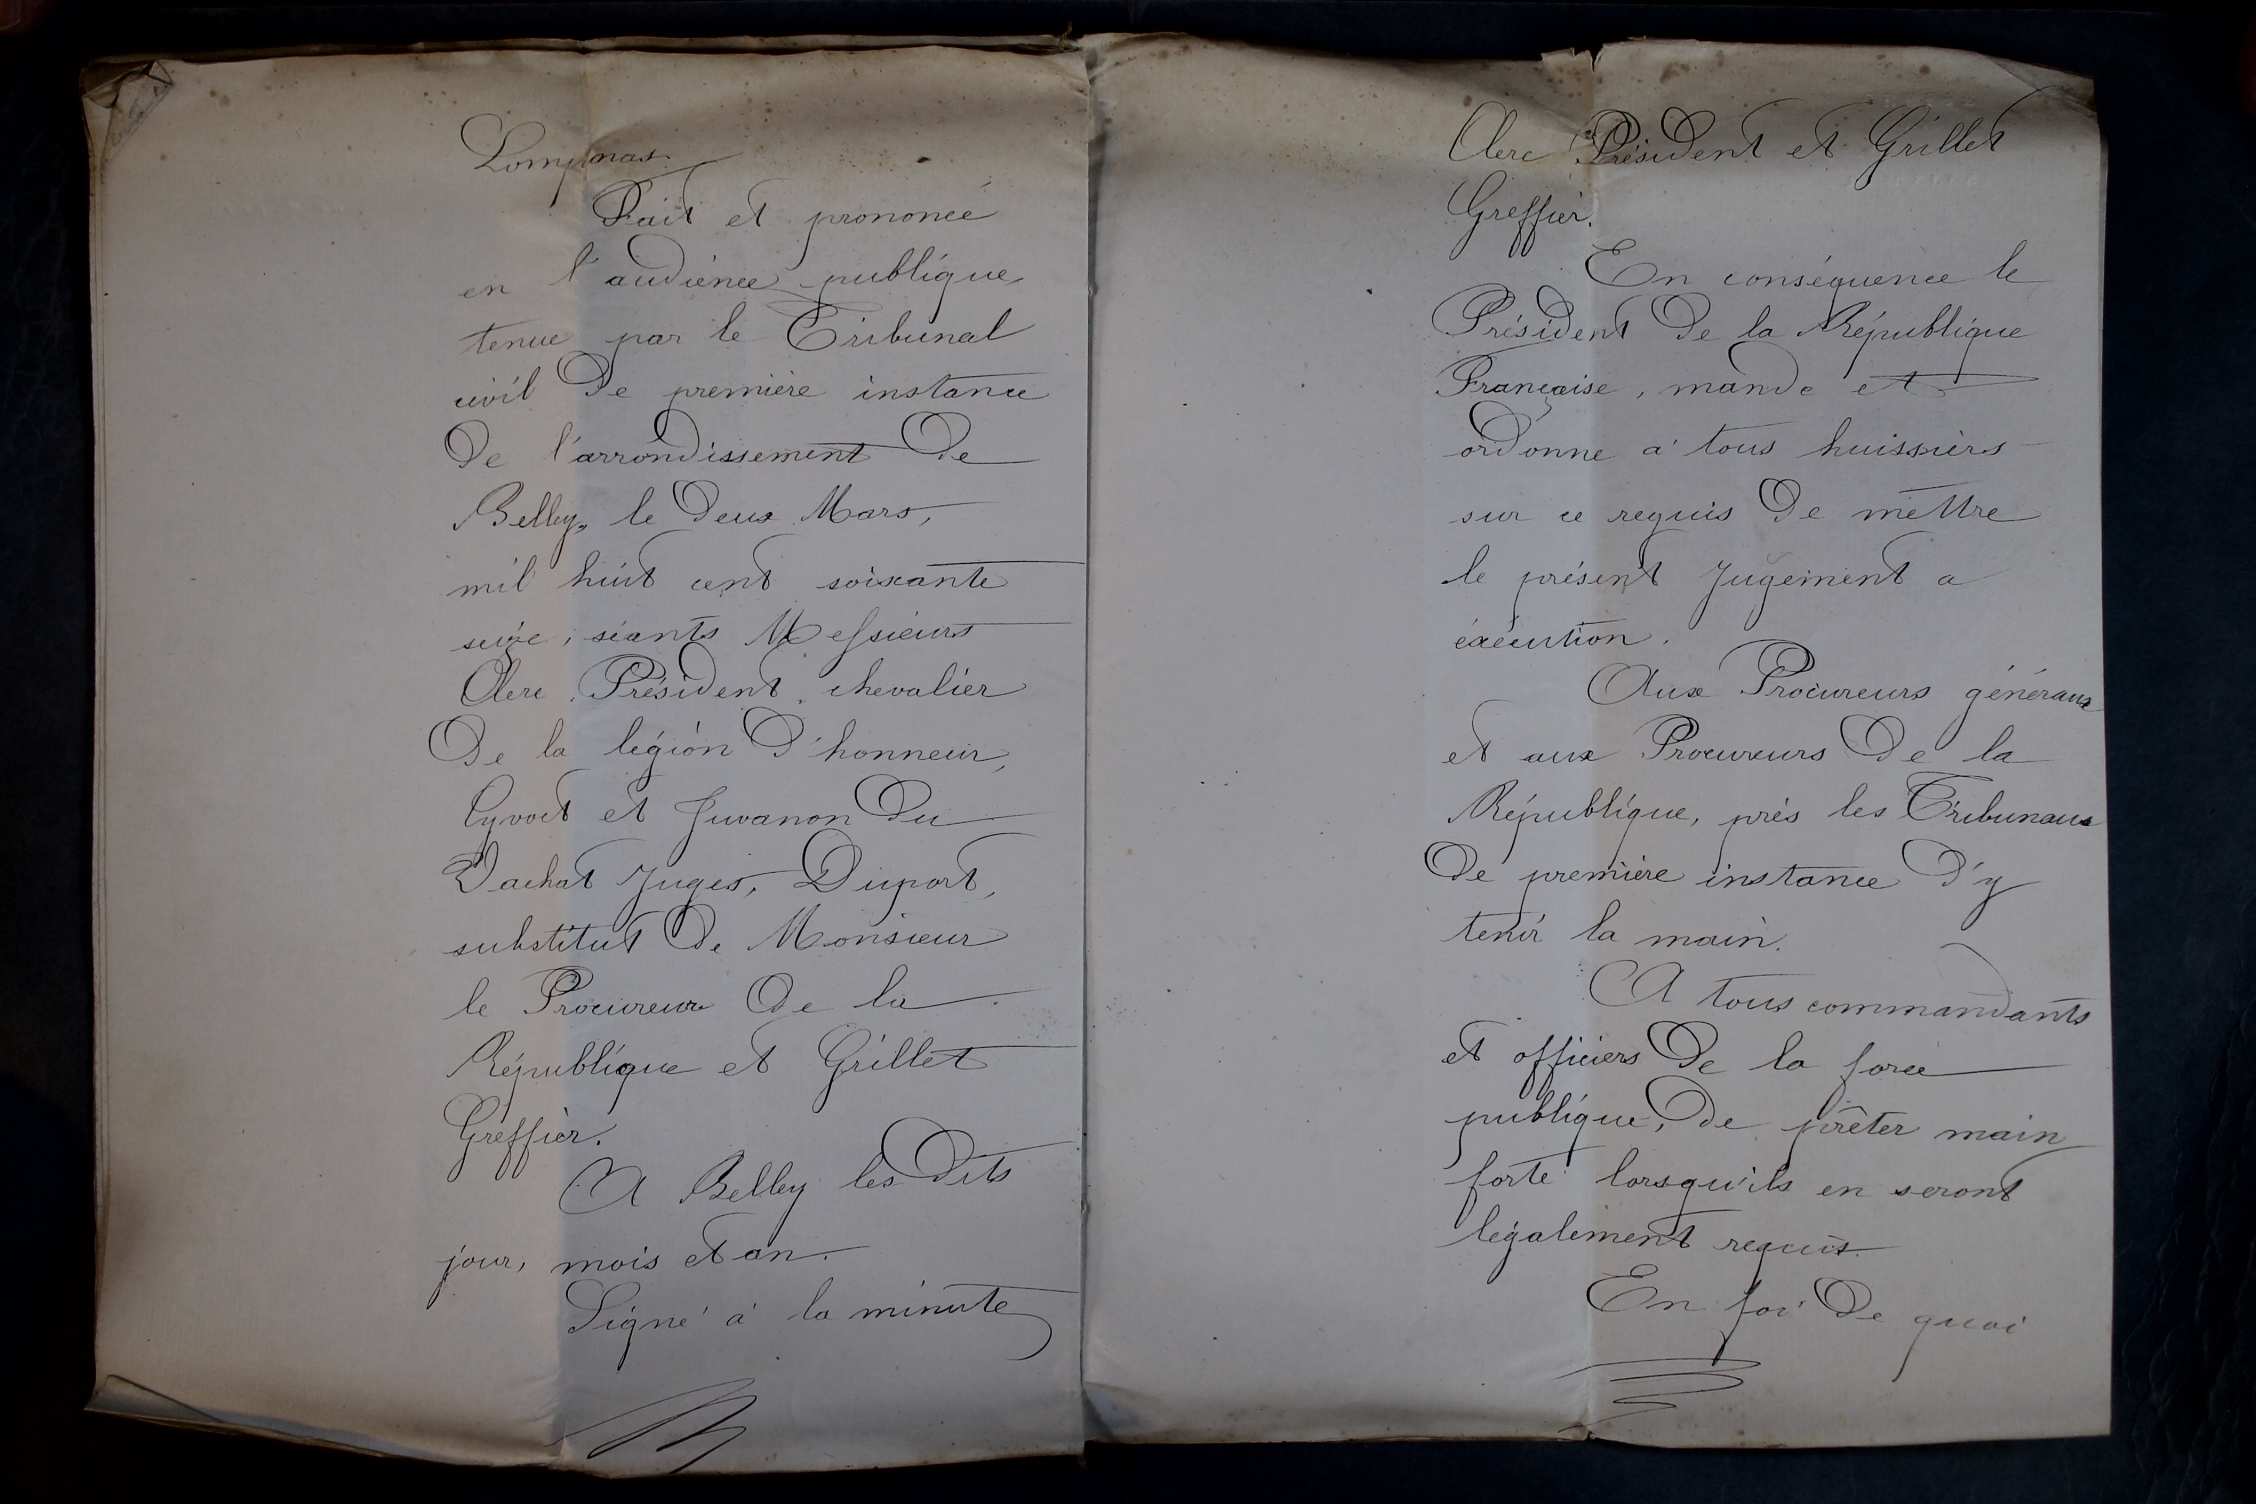 Lompnas.
Fait et prononcé
en l'audience publique
tenue par le Tribunal
civil De première instance
De l'arrondissement De
Belley, le Deux Mars,
mil huit cent soixante
seize, séants Messieurs
Clerc Président, chevalier
De la légion D'honneur,
Cyvoct et Juvanon Du
Vachat Juges, Duport,
substitut De Monsieur
le Procureur De la
République et Grillet
Greffier.
A Belley les Dits
jour, mois et an.
Signé à la minute
Clerc Président et Grillet
Greffier.
En conséquence le
Président De la République
Française, mande et
ordonne à tous huissiers
sur ce requis De mettre
le présent Jugement a
éxécution.
Aux Procureurs généraux
et aux Procureurs De la
République, près les Tribunaux
De première instance D'y
tenir la main.
A tous commandants
et officiers De la force
publique, De prêter main
forte lorsqu'ils en seront
légalement requis.
En foi De quoi